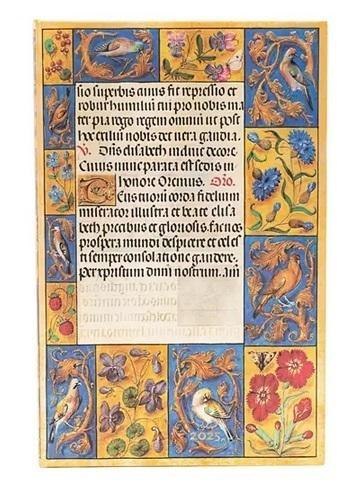 sio superbis cuius fit repressio et
robur humiliū tu pro nobis ma
ter pia rogo regem omniū ut post
hoc exiliū nobis det vera gaudia.
V. Dn̄s elisabeth induit decore.
Cuius nunc parata est sedis in
honore Oremus. Oro.
Deus tuorū corda fidelium
miserator illustra et beate elisa
beth precibus et gloriosis. fac nos
prospera mundi despicere et celes
ti semper consolatione gaudere.
Per xpristum dn̄m nostrum. am̄
2025